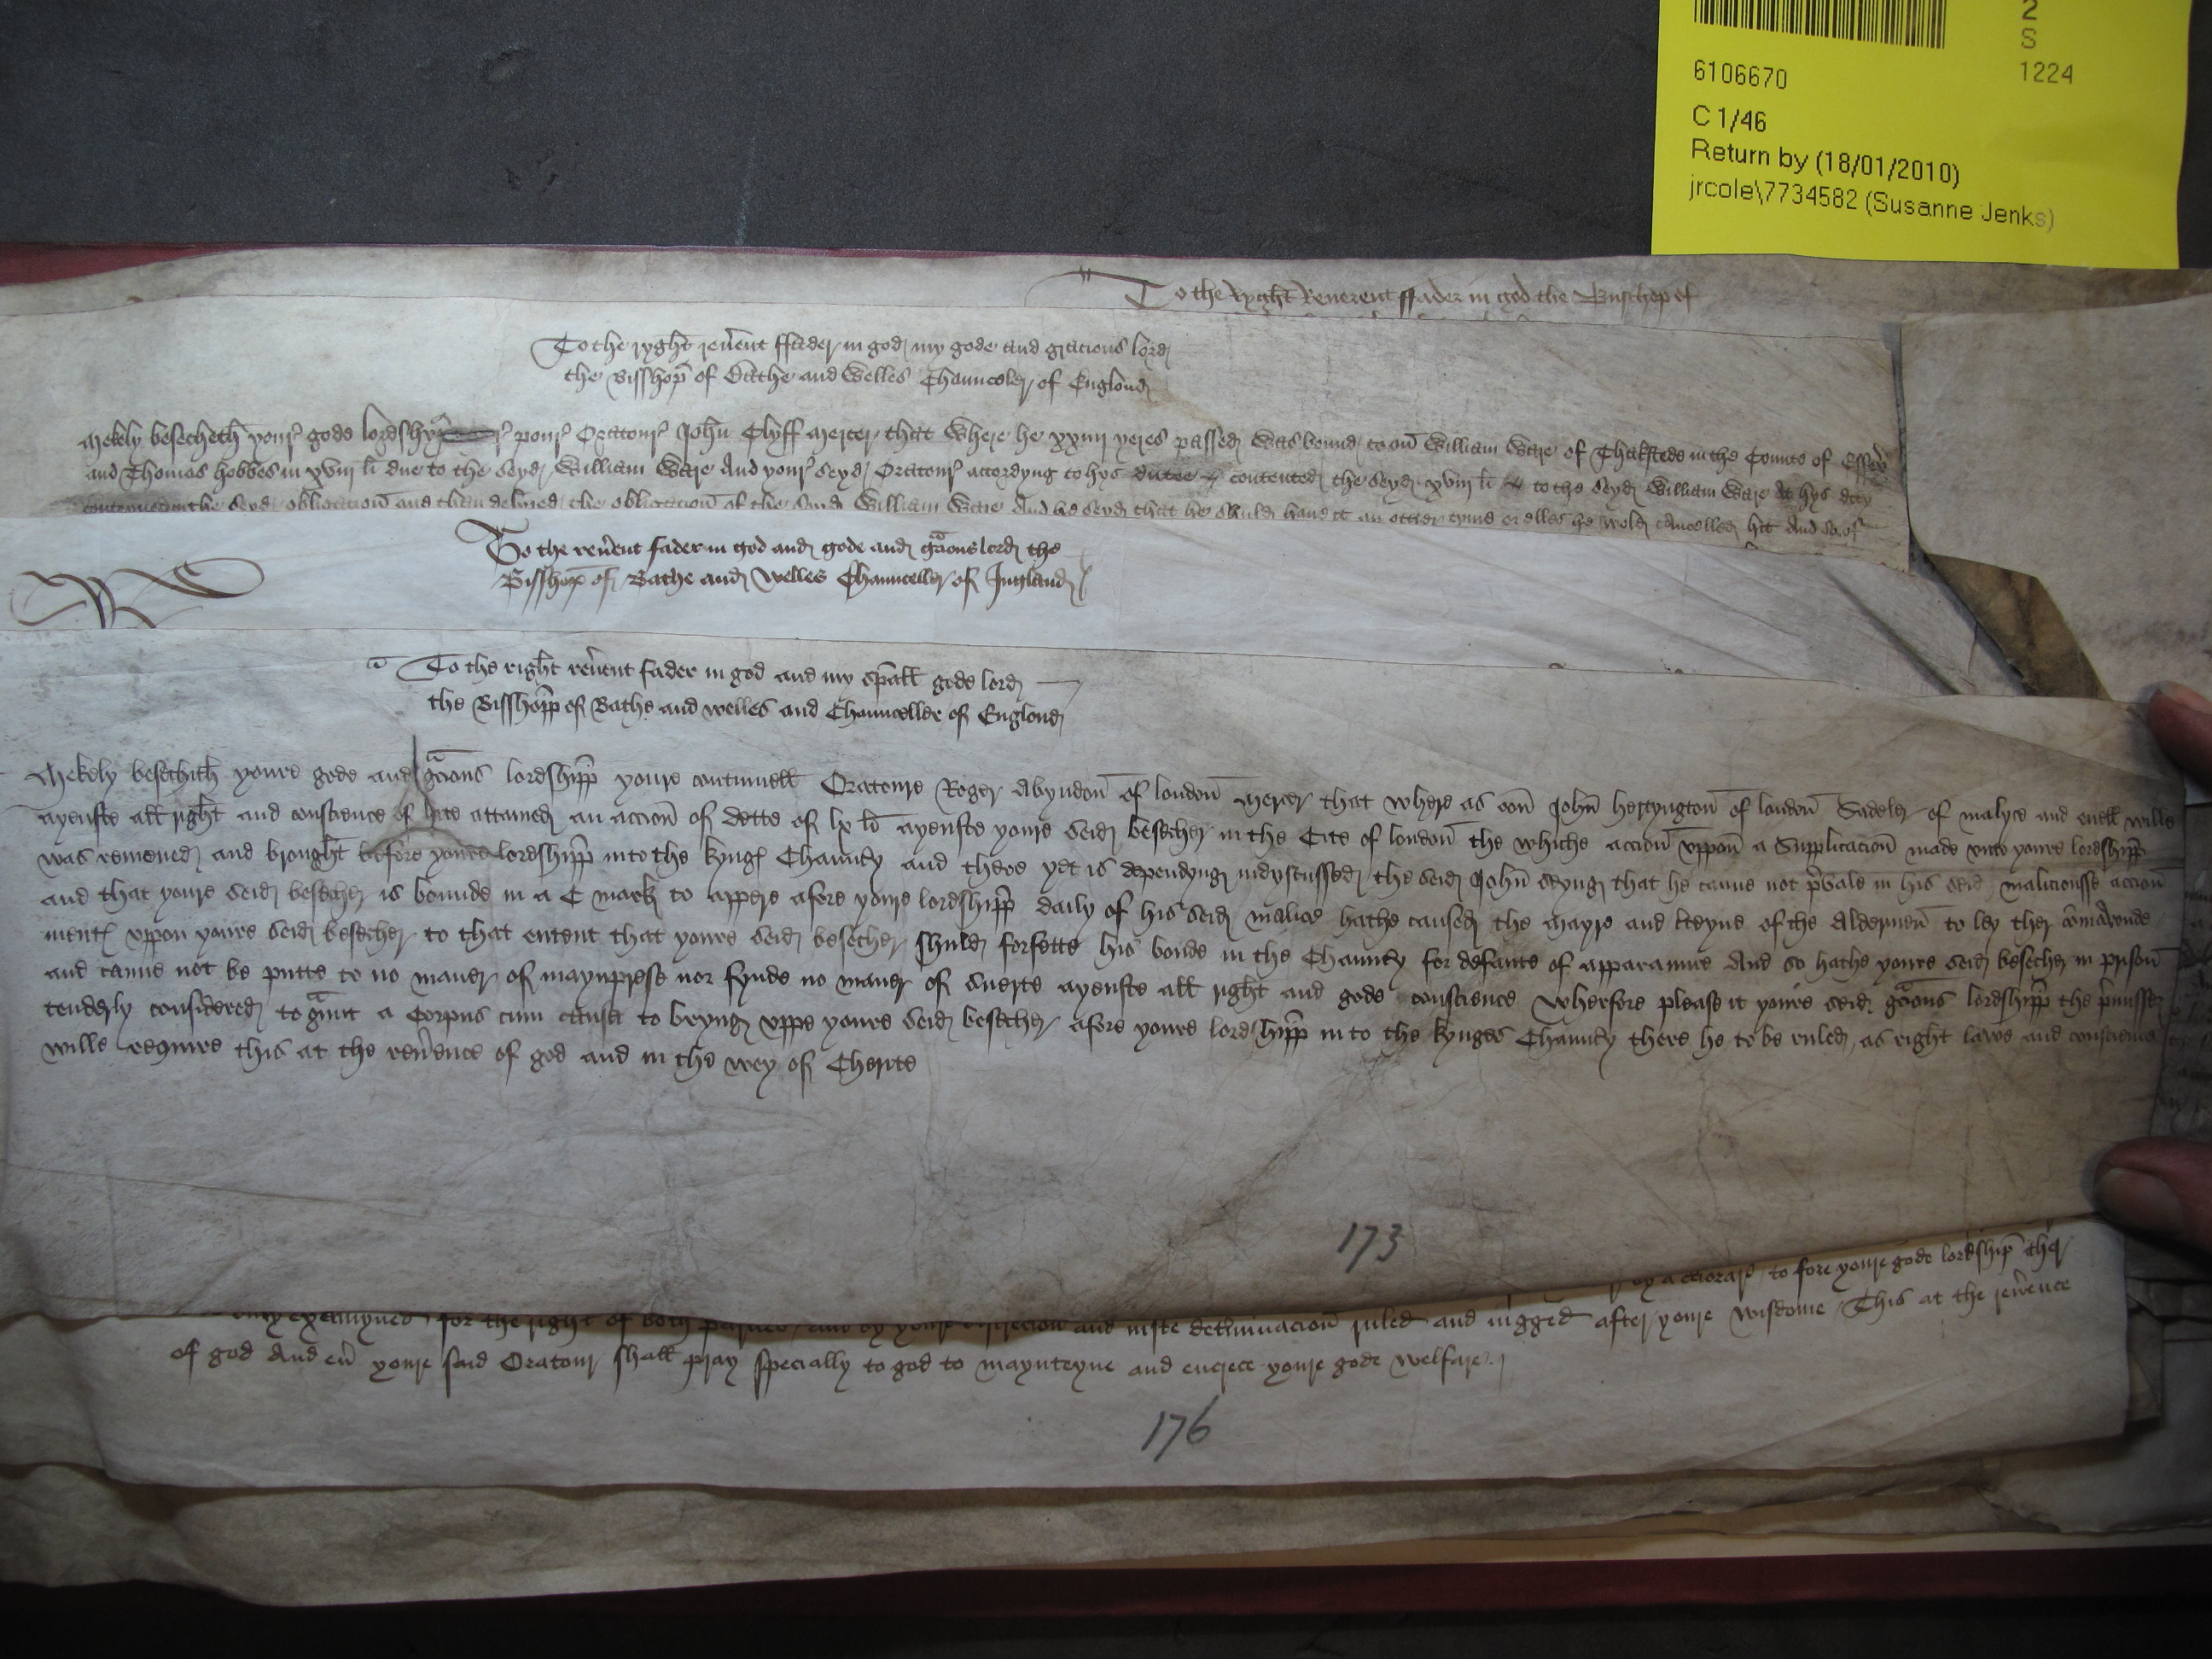 2
S
6106670 1224
C 1/46
Return by (18/01/2010)
jrcole\7734582 (Susanne Jenks)
To the Ryght Reverent ffader in god the Busschop of
To the ryght rev'ent ffader in god my gode and gracious lord
the Bisshop of Bathe and Welles Chaunceler of Englond
Mekely besecheth your gode lordshyp your Oratour John Clyff mercer that where he xxiiij yeres passed was bound to on William Ware of Thaksted in the Counte of Essex
and Thomas Hobbes in xviij li due to the seyd William Ware And your seyd Oratour accordyng to hys dutee contented the seyd xviij li to the seyd William Ware At hys
conteyned in the seyd obligacion and than desired the obligacion of the seyd William Ware And he seyd that he shuld have it an other tyme or elles he wold cancelled hit And so of
To the rev'ent fader in god and gode and gracious lord the
Bisshop of Bathe and Welles Chaunceller of Ingland
To the right rev'ent fader in god and my sp'all gode lord
the Bisshopp of Bathe and welles and Chauncellor of Englond
Mekely besechith youre gode and gracious lordshipp youre contynuell Oratoure Roger Abyndon of london mercer that where as oon John hertyngton of london Sadeler of malyce and evell wille
ayenste all right and conscience of late attamed an accion of dette of lx li ayenste youre seid besecher in the Cite of london the whiche accion uppon a Supplicacion made unto youre lordshipp
was remeved and brought before youre lordshipp into the kynges Chauncery and there yet is dependyng indyscussed the seid John seyng that he canne not p'vale in his seid maliciousse accion
and that youre seid besecher is bounde in a C mark to appere afore youre lordshipp daily of his seid malice hathe caused the mayre and c'teyne of the Aldermen to ley ther co'maunde
mentes uppon youre seid besecher to that entent that youre seid besecher shuld forfette his bonde in the Chauncery for defaute of apparaunce And so hathe youre seid besecher in prison
and canne not be putte to no maner of maynprese nor fynde no maner of suerte ayenste all right and gode conscience Wherfore please it youre seid gracious lordshipp the p'misses
tenderly considered to graunt a Corpus cum causa to bryng uppe youre seid besecher afore youre lordshipp in to the kynges Chauncery there he to be ruled as right lawe and conscience
wille require this at the rev'ence of god and in the wey of Cherite
173
to fore youre gode lordship ther
duly examyned for the right of both parties and by youre discrecion and juste det'minacion ruled and jugged after youre wisdome This at the rev'ence
of god And ev' youre said Oratour shall pray specially to god to maynteyne and encrece youre gode welfare
176